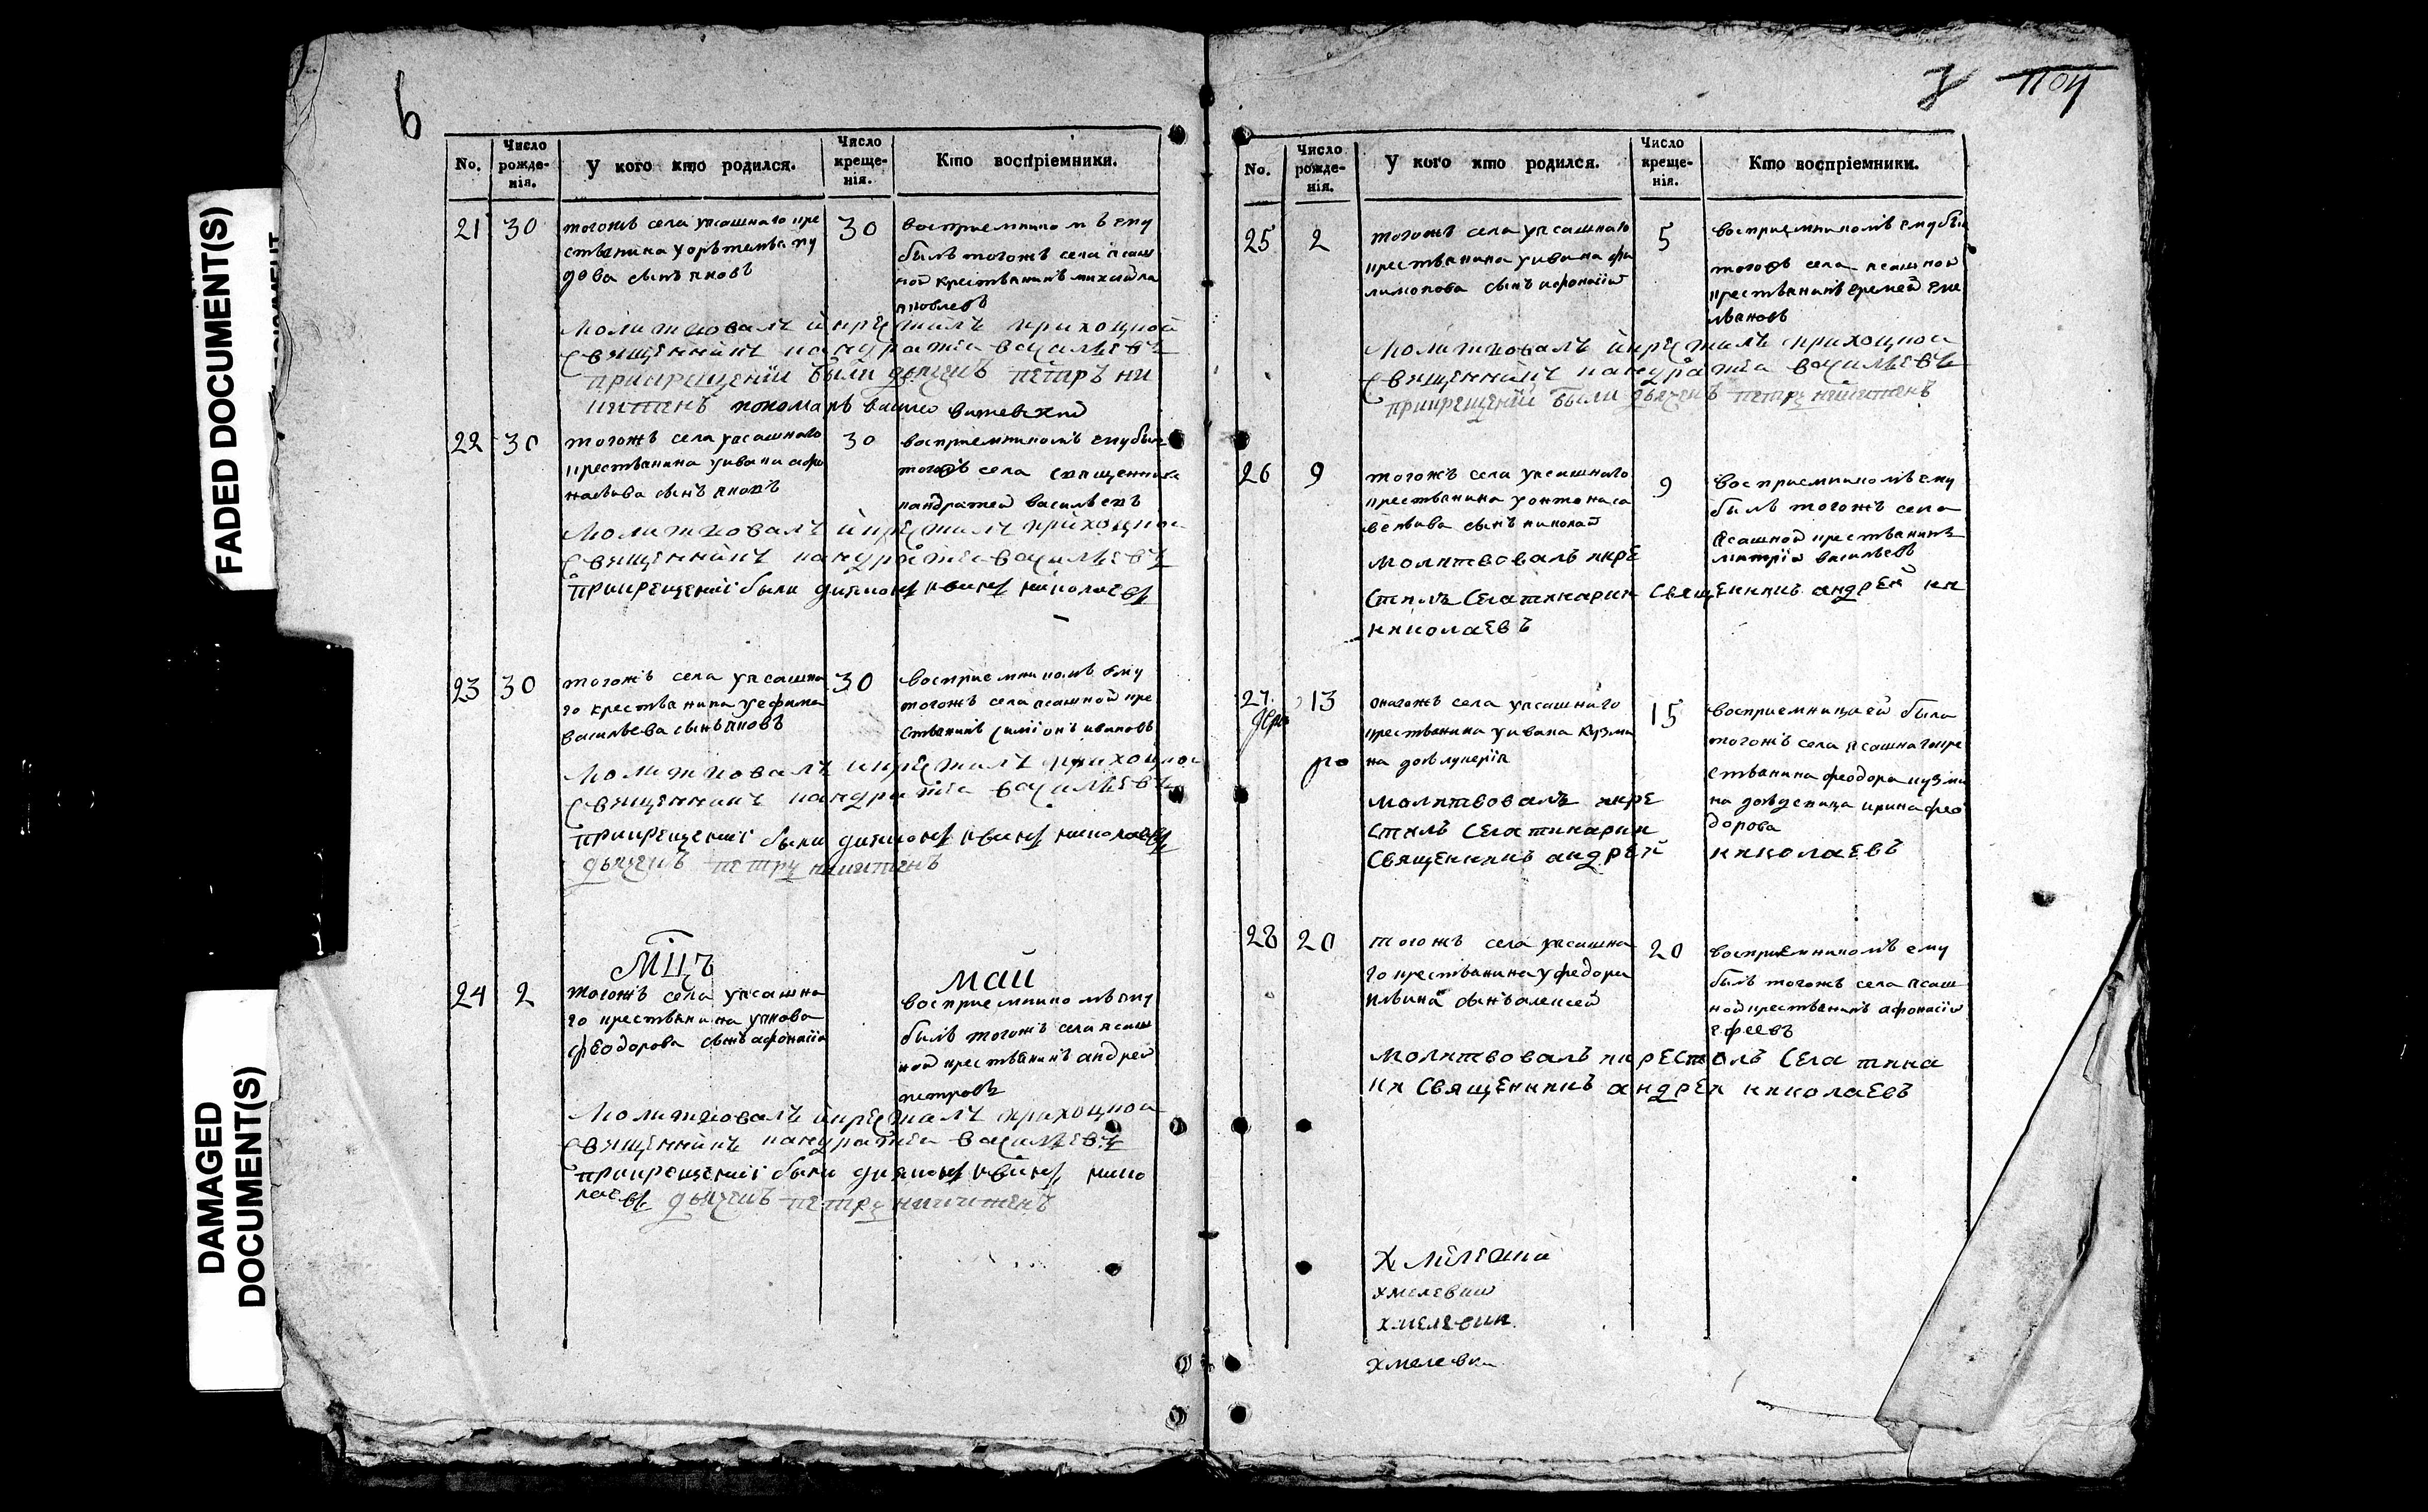 FADED DOCUMENT(S)
DAMAGED DOCUMENT(S)
6
No.
Число рожде-нія.
У кого кто родился.
Число креще-нія.
Кто воспріемники.
21 30
тогожъ села уясашнаго кре
стьянина
сынъ яковъ
30
восприемникомъ ему
былъ тогожъ села ясаш
ной крестьянинъ михайла
яковлевъ
молитвовалъ и крестилъ приходной
священникъ кандратеи васильевъ
прикрещении были дьячекъ петръ ни
китинъ пономарь василей
22 30
тогожъ села уясашнаго
крестьянина уивана афо
насьива сынъ яковъ
30
восприемникомъ ему былъ
тогожъ села священникъ
кандратей васильевъ
молитвовалъ и крестилъ приходнои
священникъ кандратеи васильевъ
прикрещении были диякон николаев
23 30
тогожъ села уясашна
го крестьянина уефима
васильева сынъ яковъ
30
восприемникомъ ему
тогожъ села ясашной кре
стьянинъ симионъ ивановъ
молитвовалъ и крестилъ приходнои
священникъ кандратеи васильевъ
прикрещении были диякон николаев
дьячекъ петръ никитинъ
мцъ май
24 2
тогожъ села уясашна
го крестьянина уякова
феодорова сынъ афонасии
восприемникомъ ему
былъ тогожъ села ясаш
ной крестьянинъ андрей
петровъ
молитвовалъ и крестилъ приходнои
священникъ кандратеи васильевъ
прикрещении были диякон нико
лаев дьячекъ петръ никитинъ
No.
Число рожде-нія.
У кого кто родился.
Число креще-нія.
Кто воспріемники.
25 2
тогожъ села уясашнаго
крестьянина уивана фи
лимонова сынъ афонасий
5
восприемникомъ ему был
тогожъ села ясашной
крестьянинъ еремей еме
льяновъ
молитвовалъ и крестилъ приходнои
священникъ кандратеи васильевъ
прикрещении были дьячекъ петръ никитинъ
26 9
тогожъ села уясашнаго
крестьянина уонтона са
вельива сынъ николай
9
восприемникомъ ему
былъ тогожъ села
ясашной крестьянинъ
митрий васильевъ
молитвовалъ икре
стилъ села тинарки священникъ андрей
николаевъ
27. 13
оногожъ села уясашнаго
крестьянина уивана кузми
на дочь лукерия
15
восприемницаей была
тогожъ села ясашнаго кре
стьянина феодора кузми
на дочь девица ирина фео
дорова
молитвовалъ икре
стилъ села тинарки
священникъ андрей николаевъ
28 20
тогожъ села уясашна
го крестьянина уфедора
ильина сынъ алексей
20
восприемникомъ ему
былъ тогожъ села ясаш
ной крестьянинъ афонасий
ефеевъ
молитвовалъ икрестилъ села тина
ки священникъ андреи николаевъ
хмелевки
хмелевки
хмелевки